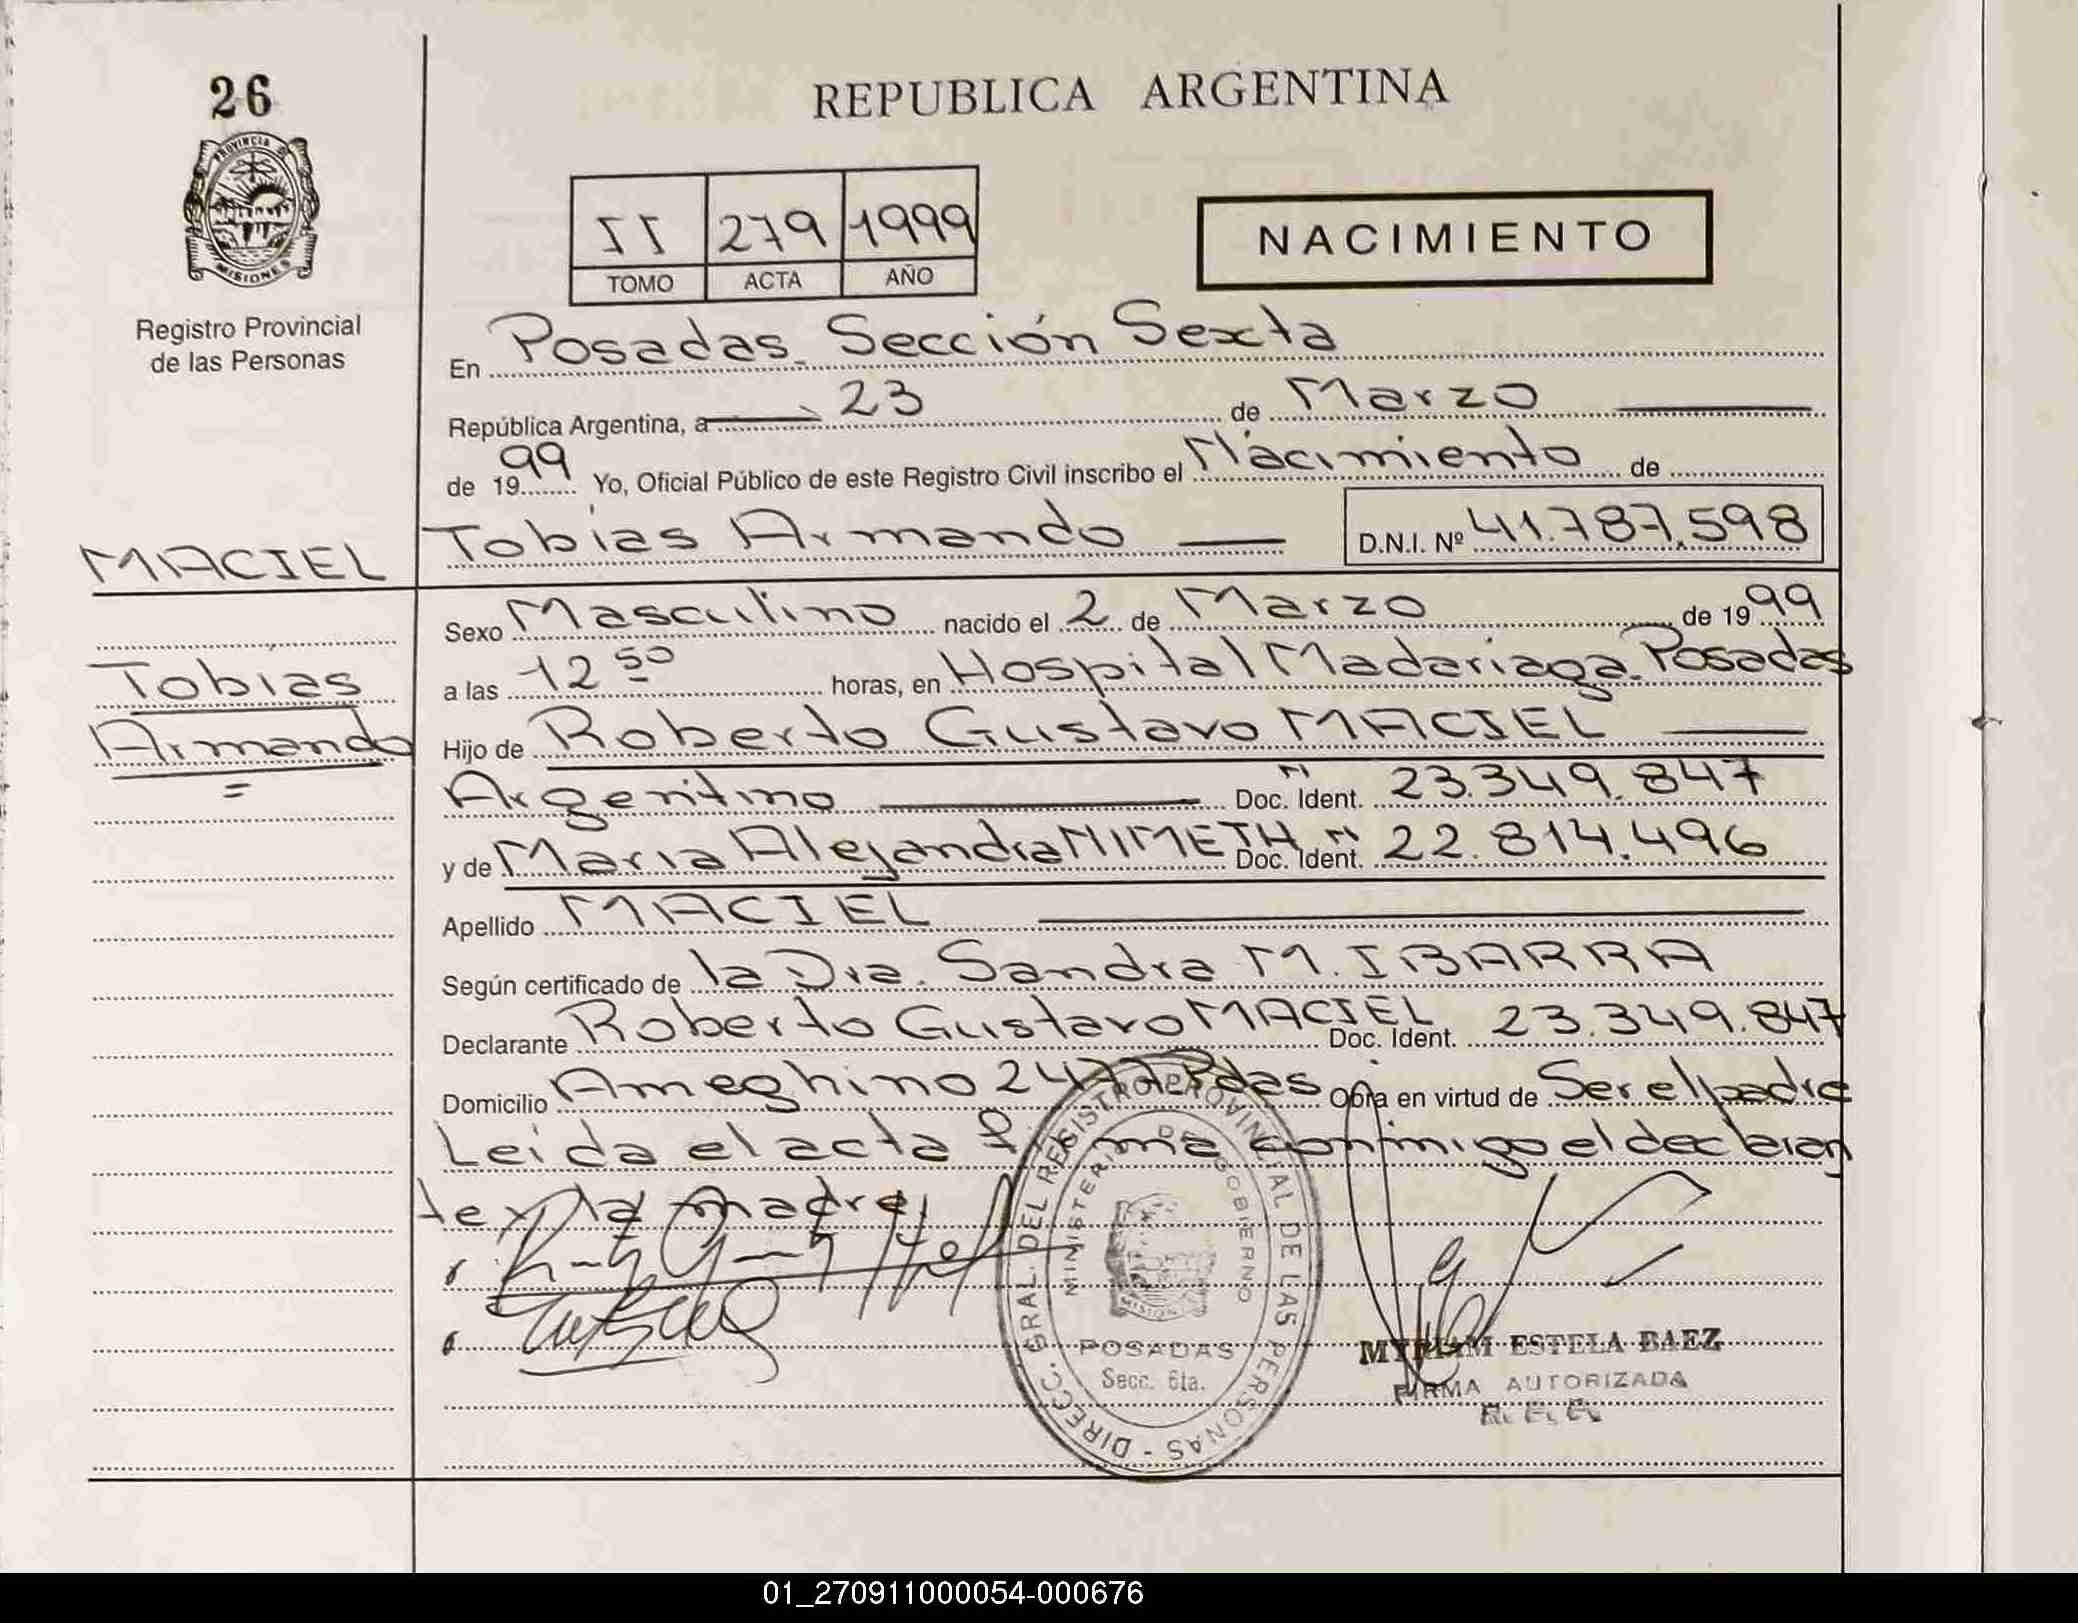 26
REPUBLICA ARGENTINA
PROVINCIA DE
MISIONES
II 279 1999
TOMO ACTA AÑO
NACIMIENTO
Registro Provincial
de las Personas
En Posadas. Sección Sexta
República Argentina, a 23 de Marzo
de 1999 Yo, Oficial Público de este Registro Civil inscribo el Nacimiento de
MACIEL Tobias Armando D.N.I. Nº 41.787.598
Sexo Masculino nacido el 2 de Marzo de 1999
Tobias
a las 12 50 horas, en Hospital Madariaga. Posadas
Armando
Hijo de Roberto Gustavo MACIEL
Argentino Doc. Ident. 23.349.847
y de Maria Alejandra NIMETH Doc. Ident. 22.814.496
Apellido MACIEL
Según certificado de la Dra. Sandra M. IBARRA
Declarante Roberto Gustavo MACIEL Doc. Ident. 23.349.847
Domicilio Ameghino 2477 Pdas Obra en virtud de Ser el padre
Leida el acta firma conmigo el declaran
te y la madre
DIRECC. GRAL. DEL REGISTRO PROVINCIAL DE LAS PERSONAS -
MINISTERIO DE GOBIERNO
MISIONES
POSADAS
Secc. 6ta.
MYRIAM ESTELA BAEZ
FIRMA AUTORIZADA
01_270911000054-000676